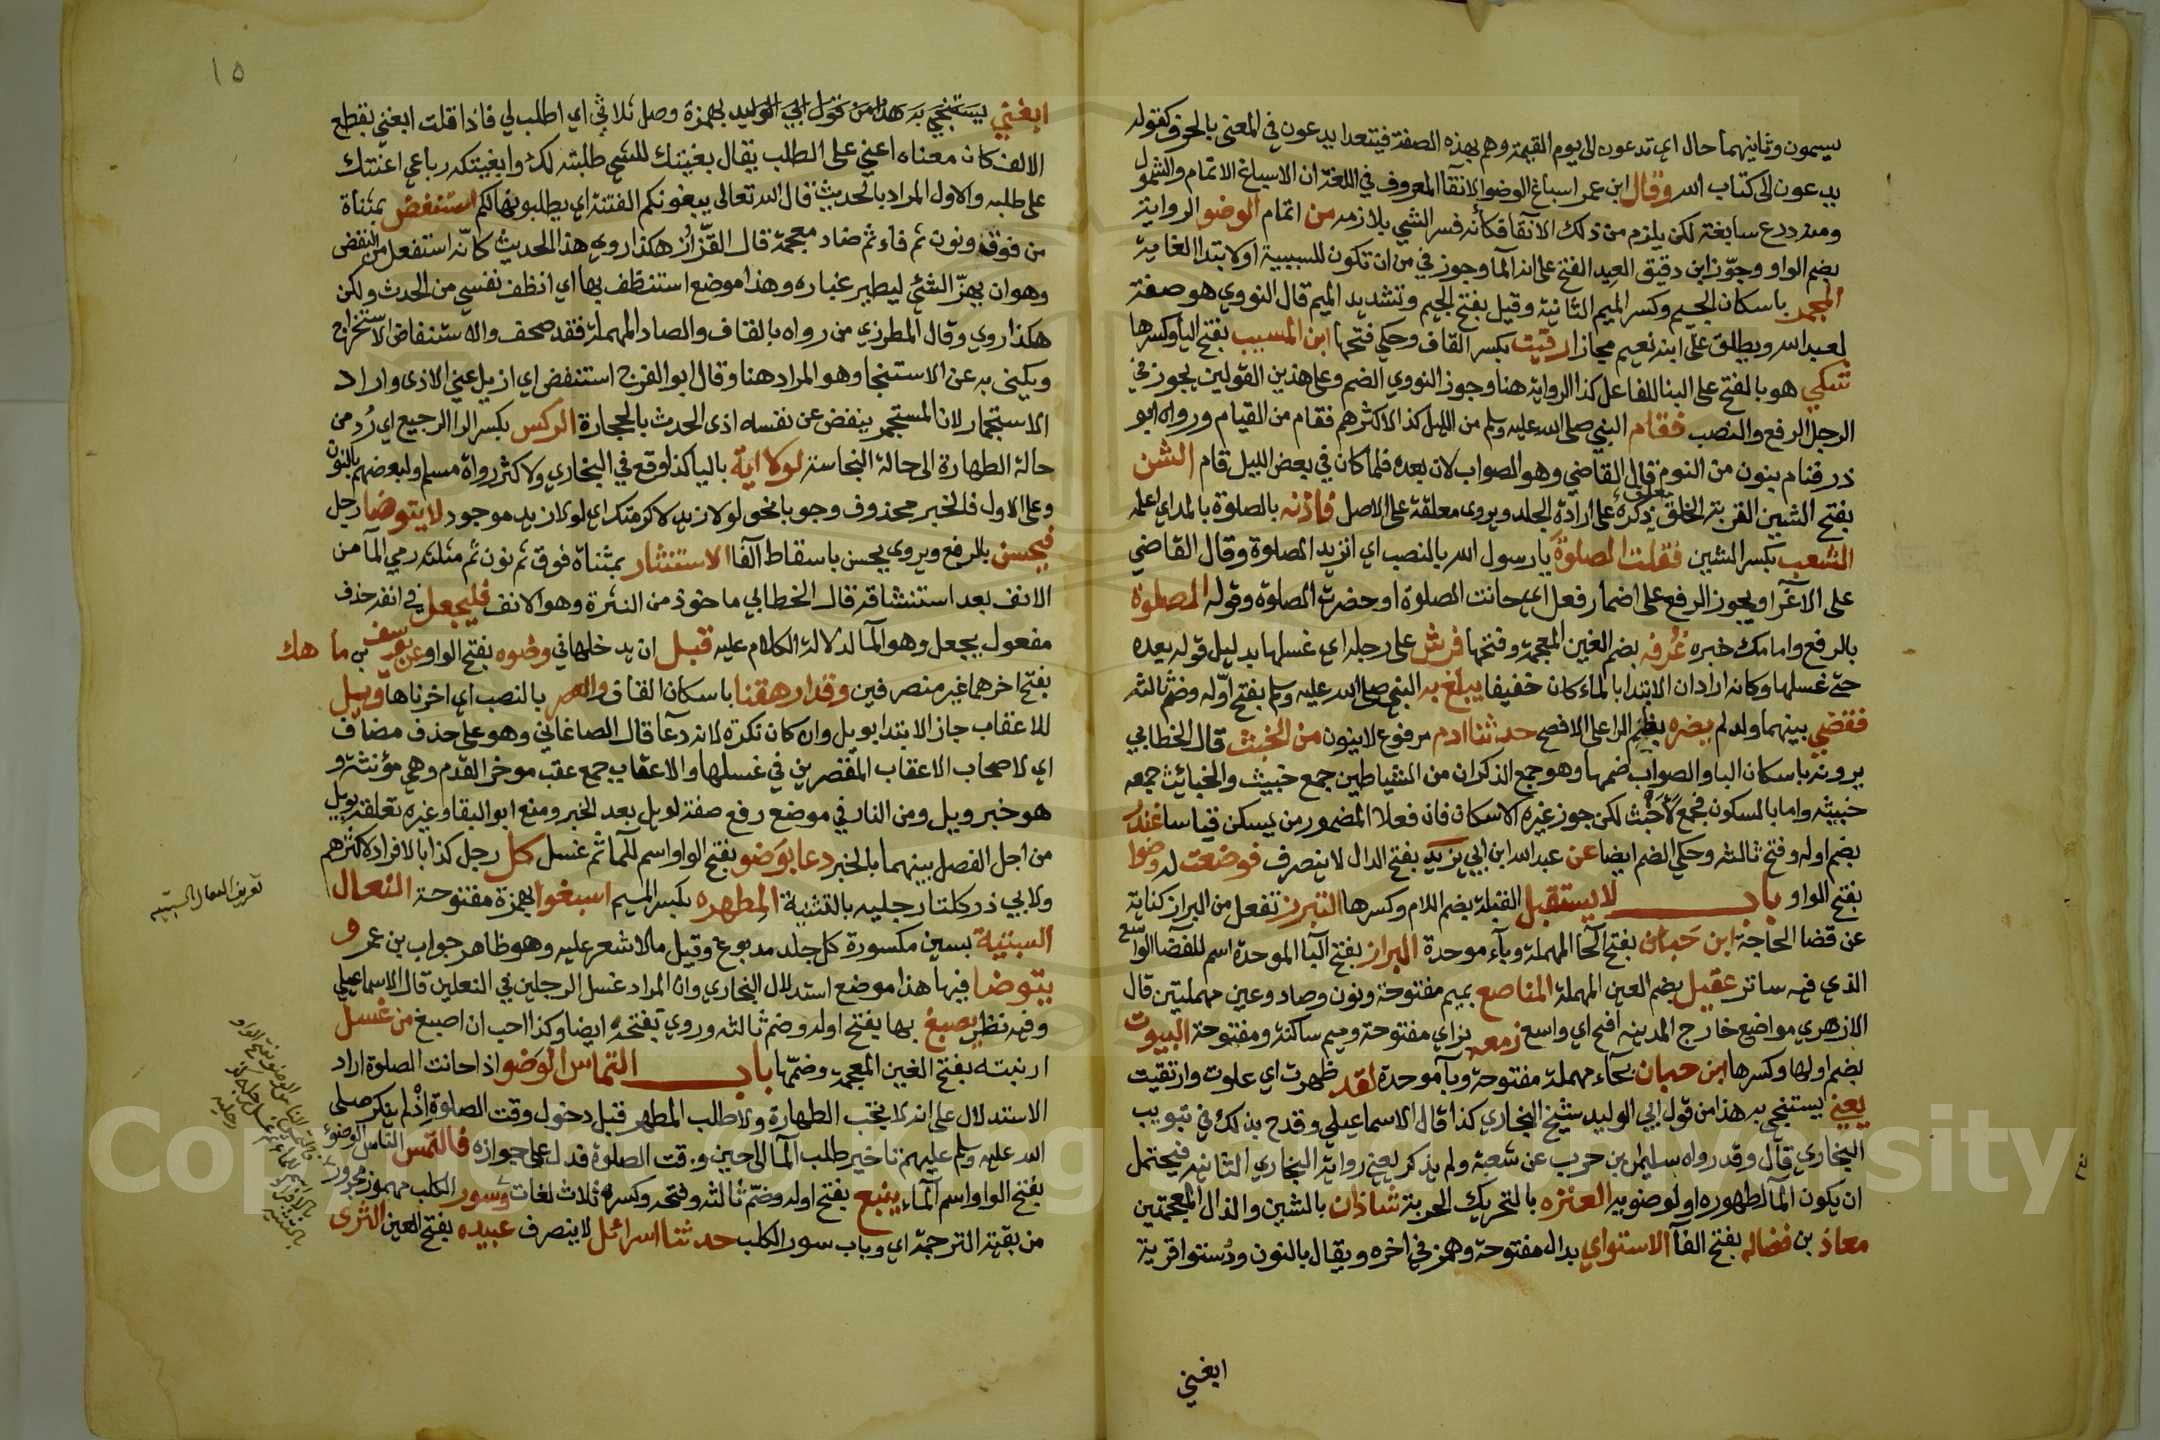 يسمون وثانيهما حال اي تدعون الى يوم القيمة وهم بهذه الصفة فيتعدا يدعون في المعنى بالحرف كقوله
يدعون الى كتاب الله وقال ابن عمر اسباغ الوضو الانقآ المعروف في اللغة ان الاسباغ الاتمام والشمول
ومنه درع سابغة لكن يلزم من ذلك الانقآ فكأنه فسر الشي بلازمه من اتمام الوضو الرواية
بضم الواو وجوّز ابن دقيق العيد الفتح على انه المآ وجوز في من ان تكون للسببية او لابتدا الغاية
المجمر باسكان الجيم وكسر الميم الثانية وقيل بفتح الجيم وتشديد الميم قال النووي هو صفة
لعبد الله ويطلق على ابنه نعيم مجازا رقيت بكسر القاف وحكي فتحها ابن المسيب بفتح اليا وكسرها
شكي هو بالفتح على البنا للفاعل كذا الرواية هنا وجوز النووي الضم وعلى هذين القولين يجوز في
الرجل الرفع والنصب فقام النبي صلى الله عليه وسلم من الليل كذا الاكثرهم فقام من القيام ورواه ابو
ذر فنام بنون من النوم قال القاضي وهو الصواب لان بعده فلما كان في بعض الليل قام الشن
بفتح الشين القربة الخلق ذكره على ارادة الجلد ويروى معلقة على الاصل فاذنه بالصلوة بالمد اي اعلمه
الشعب بكسر الشين فقلت الصلوةَ يا رسول الله بالنصب اي اتريد الصلوة وقال القاضي
على الاغرآ ويجوز الرفع على اضمار فعل اي حانت الصلوة او حضرت الصلوة وقوله الصلوة
بالرفع وامامك خبره غرفه بضم الغين المعجمة وفتحها فرش على رجله اي غسلها بدليل قوله بعده
حتى غسلها وكانه اراد ان الابتدا بالماء كان خفيفا يبلغ به النبي صلى الله عليه وسلم بفتح اوّله وضم ثالثه
فقضي بينهما ولد لم يضره بضم الرا على الافصح حدثنا ادم مرفوع لاينون من الخبث قال الخطابي
يرونه باسكان البا والصواب ضمها وهو جمع الذكران من الشياطين جمع خبيث والخبائث جمعه
خبيثه واما بالسكون فجمع لاخبث لكن جوز غيره الاسكان فان فعلا المضموم يسكن قياسا غندر
بضم اوله وفتح ثالثه وحكي الضم ايضا عن عبد الله ابن ابي يزيد بفتح الدال لا ينصرف فوضعت له وضوا
بفتح الواو باب لا يستقبل القبلة بضم اللام وكسرها التبرز تفعل من البراز كناية
عن قضا الحاجة ابن حبان بفتح الحآ المهملة وبآء موحدة البراز بفتح البآ الموحدة اسم للفضا الواسع
الذي فيه ساتر عقيل بضم العين المهملة المناصع بميم مفتوحة ونون وصاد وعين مهملتين قال
الازهري مواضع خارج المدينه افيح اي واسع زمعه بزاي مفتوحة وميم ساكنة ومفتوحة البيوت
بضم اولها وكسرها ابن حبان بحاء مهملة مفتوحة وبآ موحدة لقد ظهرت اي علوت وارتقيت
يعني يستنجي به هذا من قول ابي الوليد شيخ البخاري كذا قال الاسماعيلي وقدح بذلك في تبويب
البخاري قال وقد رواه سليمن بن حرب عن شعبة ولم يذكر يعني رواية البخاري الثانيه فيحتمل
ان يكون المآ لطهوره او لوضوىه العنزه بالتحريك الحربة شاذان بالشين والذال المعجمتين
معاذ بن فضاله بفتح الفآ الاستواي بدال مفتوحة وهمز في اخره ويقال بالنون ودستوا قرية
ابغني
١٥
ابغني يستنجي به هذا من قول ابي الوليد بهمزة وصل ثلاثي اي اطلب لي فاذا قلت ابغني بقطع
الالف كان معناه اعني على الطلب يقال بغيتك للشي طلبته لك وابغيتكه رباعي اعنتك
على طلبه والاول المراد بالحديث قال الله تعالى يبغونكم الفتنة اي يطلبونها لكم استنفض بمثناة
من فوق ونون ثم فاء ثم ضاد معجمة قال القزّاز هكذا روي هذا الحديث كانّه استفعل من النفض
وهو ان يهزّ الشئ ليطير غباره وهذا موضع استنظف بها اي انظف نفسي من الحدث ولكن
هكذا روي وقال المطرزي من رواه بالقاف والصاد المهملة فقد صحف والاستنفاض الاستخراج
ويكنى به عن الاستنجا وهو المراد هنا وقال ابو الفرج استنفض اي ازيل عني الاذى واراد
الاستجمار لان المستجمر ينفض عن نفسه اذى الحدث بالحجارة الركس بكسر الرا الرجيع اي رُد من
حالة الطهارة الى حالة النجاسة لولا اية باليا كذا وقع في البخاري ولاكثر رواة مسلم ولبعضهم بالنون
وعلى الاول فالخبر محذوف وجوبا نحو لولا زيد لاكرمتك اي لولا زيد موجود لا يتوضا رجل
فيحسن بالرفع ويروى يحسن باسقاط الفا الاستنثار بمثناة فوق ثم نون ثم مثلثه رمي المآ من
الانف بعد استنشاقه قال الخطابي ماخوذ من النثرة وهو الانف فليجعل في انفه حذف
مفعول يجعل وهو المآ لدلالة الكلام عليه قبل ان يدخلها في وضوه بفتح الواو عن يوسف بن ماهك
بفتح اخرهما غير منصرفين وقد ارهقنا باسكان القاف والعصر بالنصب اي اخرناها ويل
للاعقاب جاز الابتدا بويل وان كان نكرة لانه دعآ قال الصاغاني وهو على حذف مضاف
اي لاصحاب الاعقاب المقصرين في غسلها والاعقاب جمع عقب موخر القدم وهي مؤنثة و
هو خبر ويل ومن النار في موضع رفع صفة لويل بعد الخبر ومنع ابو البقا وغيره تعلقه بويل
من اجل الفصل بينهما بالخبر دعا بوَضو بفتح الواو اسم للمآ ثم غسل كل رجل كذا بالافراد لاكثرهم
ولابي ذر كلتا رجليه بالتثنية المطهره بكسر الميم اسبغوا بهمزة مفتوحة النعال
السبتية بسين مكسورة كل جلد مدبوغ وقيل ما لا شعر عليه وهو ظاهر جواب بن عمر و
يتوضا فيها هذا موضع استدلال البخاري وان المراد غسل الرجلين في النعلين قال الاسماعيلي
وفيه نظر يصبغ بها بفتح اوله وضم ثالثه وروي بفتحه ايضا وكذا احب ان اصبغ من غسل
ارنبته بفتح الغين المعجمة وضمّها باب التماس الوَضو اذا حانت الصلوة اراد
الاستدلال على انه لا يجب الطهارة ولا طلب المطهر قبل دخول وقت الصلوة اذ لم ينكر صلى
الله عليه وسلم عليهم تاخير طلب المآ الى حين وقت الصلوة فدل على جوازه فالتمس الناس الوضوء
بفتح الواو اسم المآء ينبع بفتح اوله وضمّ ثالثه وفتحه وكسره ثلاث لغات وسور الكلب مهموز مجرور
من بقية الترجمة اي وباب سور الكلب حدثنا اسرائل لا ينصرف عبيده بفتح العين الثرى
تعريف النعال السبتية
Copyright © King Saud University